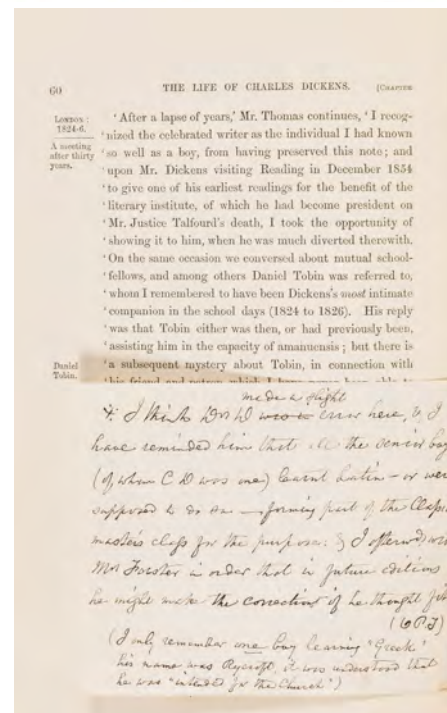 60 THE LIFE OF CHARLES DICKENS. [CHAPTER
LONDON :
1824-6.
A meeting
after thirty
years.
' After a lapse of years,' Mr. Thomas continues, ' I recog-
' nized the celebrated writer as the individual I had known
' so well as a boy, from having preserved this note ; and
' upon Mr. Dickens visiting Reading in December 1854
' to give one of his earliest readings for the benefit of the
' literary institute, of which he had become president on
' Mr. Justice Talfourd's death, I took the opportunity of
' showing it to him, when he was much diverted therewith.
' On the same occasion we conversed about mutual school-
' fellows, and among others Daniel Tobin was referred to,
' whom I remembered to have been Dickens's most intimate
' companion in the school days (1824 to 1826). His reply
' was that Tobin either was then, or had previously been,
' assisting him in the capacity of amanuensis ; but there is
Daniel
Tobin.
' a subsequent mystery about Tobin, in connection with
' his friend and patron which I have never been able to
made a slight
I think Dr D error here, & I
have reminded him that all the senior boy
(of whom C D was one) learnt Latin - or were
supposed to do so - forming part of the Class
masters class for the purpose: & I afterwards
Mr Forster in order that in future editions
he might make the correction if he thought fit
(I only remember one boy learning "Greek"
his name was Rycroft, it was understood that
he was "intended for the Church")